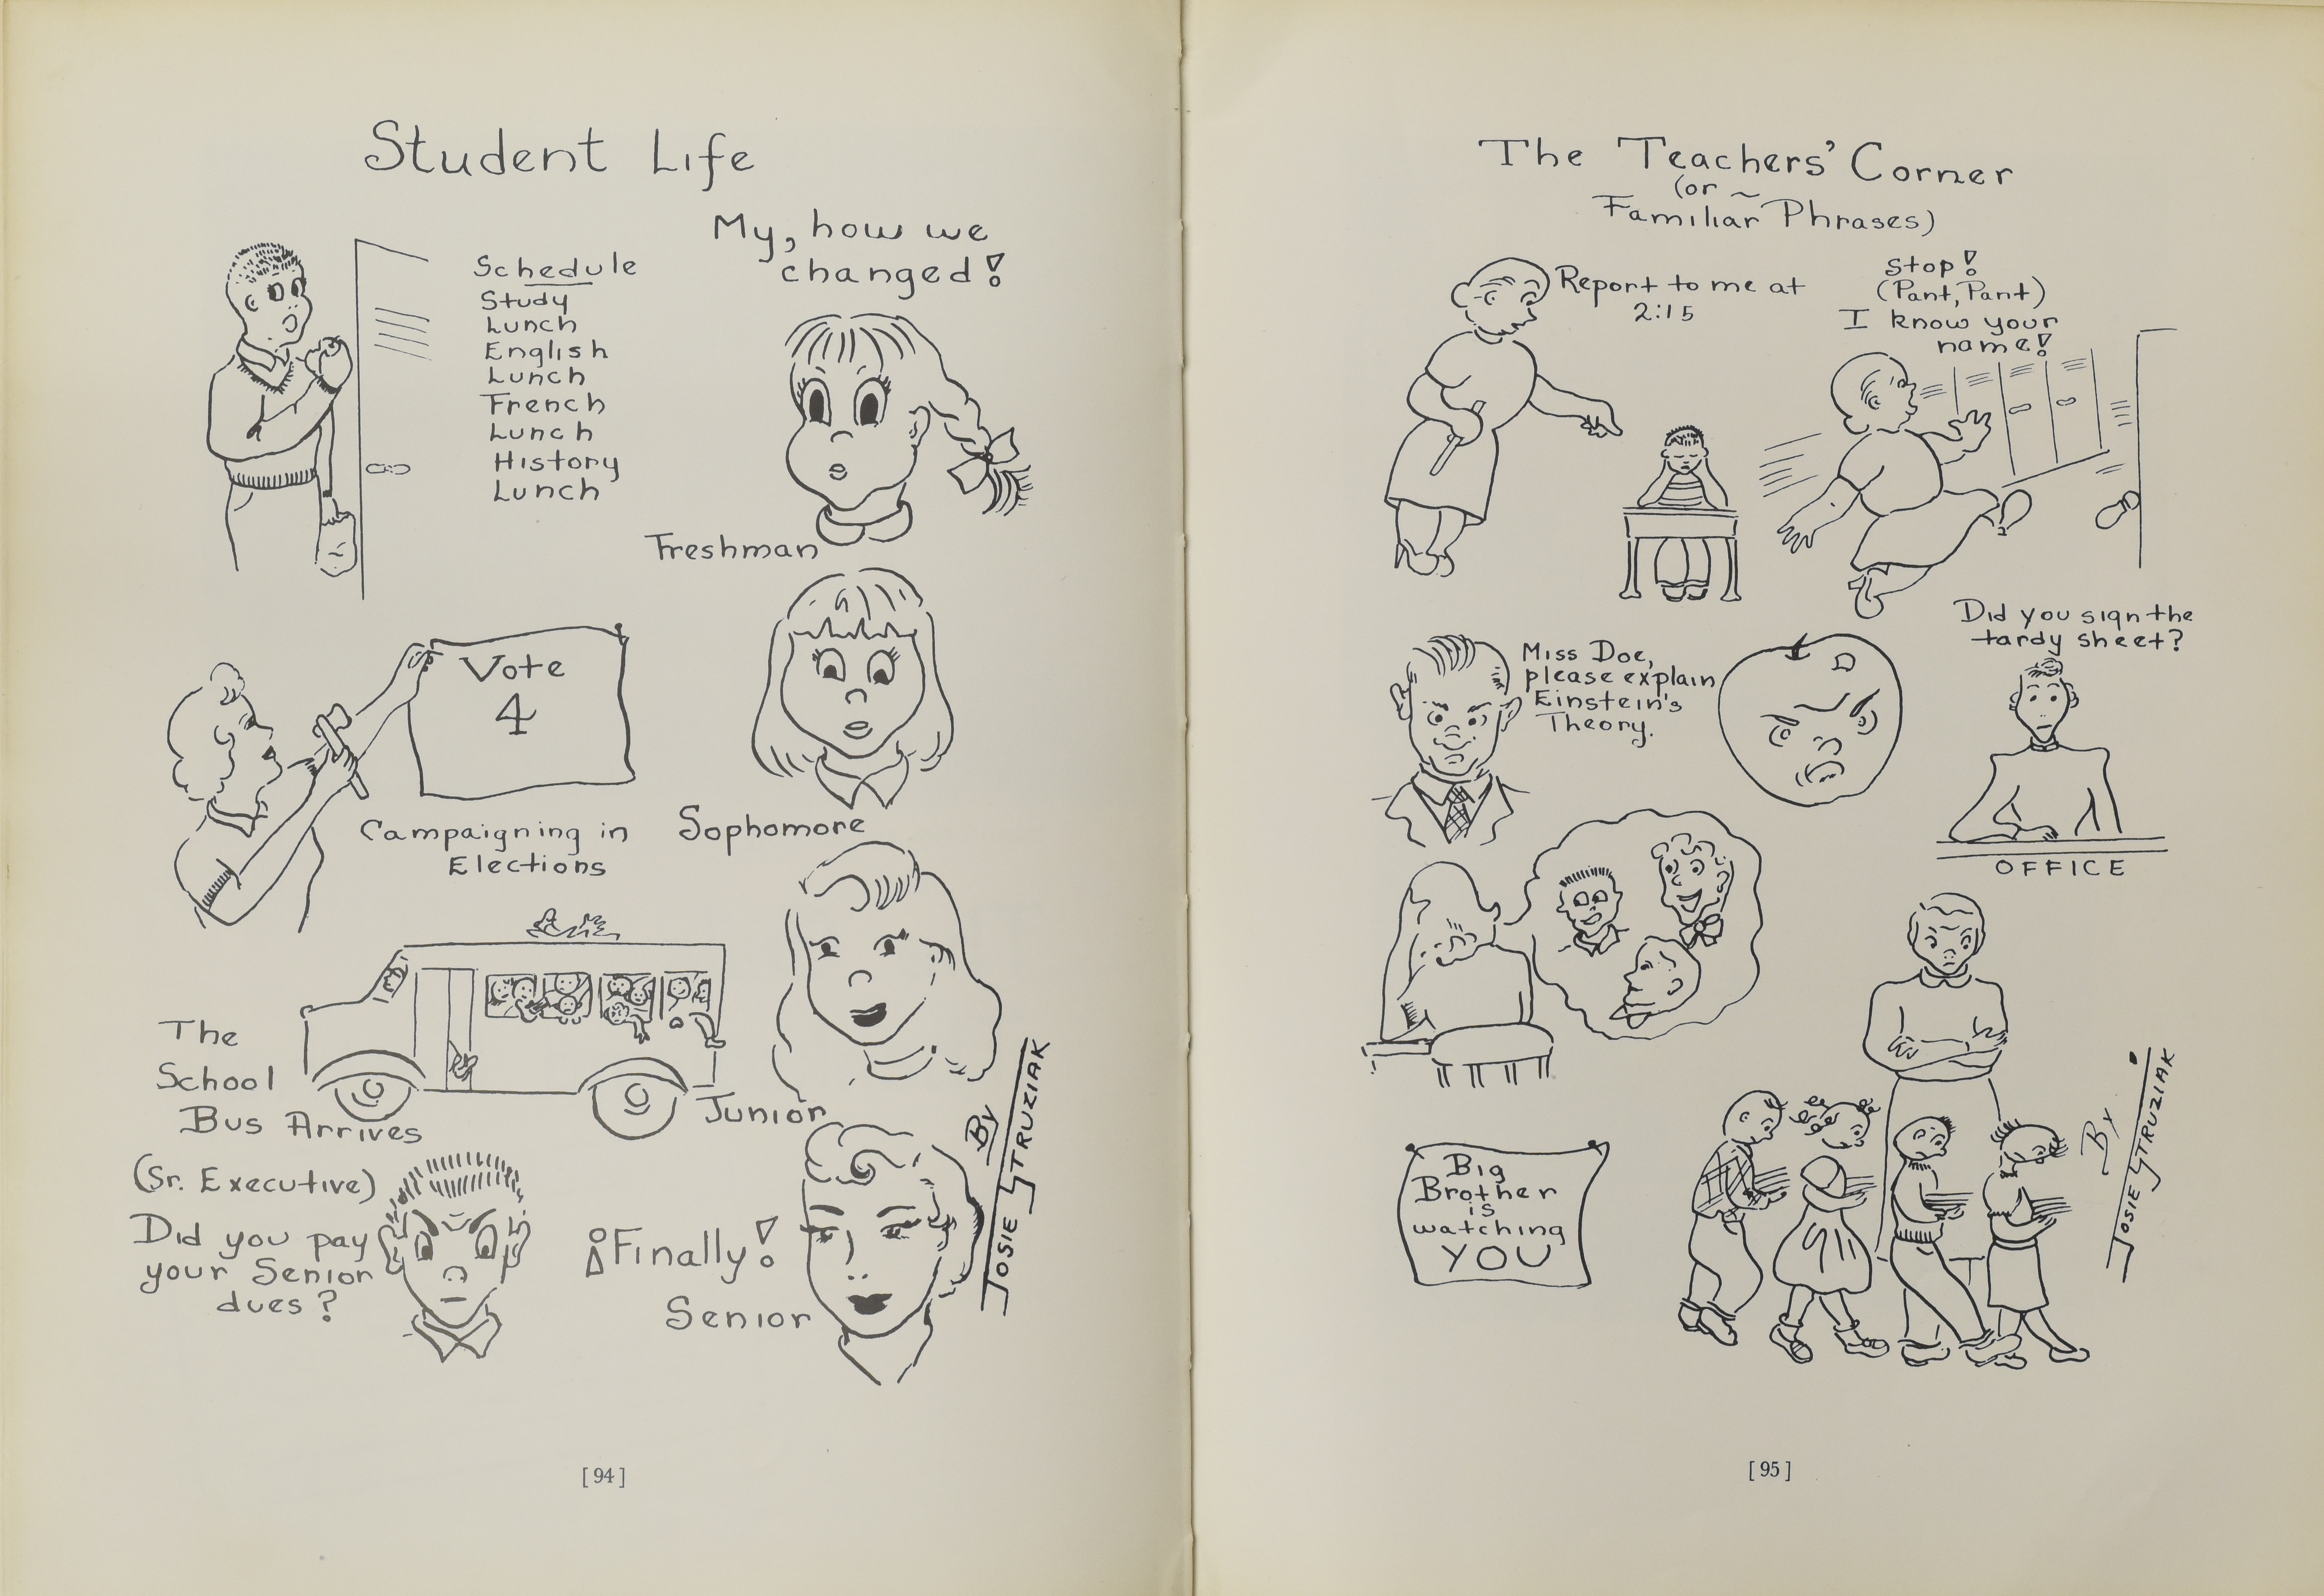 Student Life
Schedule
Study
Lunch
English
Lunch
French
Lunch
History
Lunch
My, how we
changed!
Freshman
Vote
4
Campaigning in
Elections
Sophomore
The
School
Bus Arrives
Junior
(Sr. Executive)
Did you pay
your Senior
dues?
¡Finally!
Senior
By
JOSIE STRUZIAK
[94]
The Teachers' Corner
(or ~
Familiar Phrases)
Report to me at
2:15
Stop!
(Pant, Pant)
I know your
name!
Miss Doe,
please explain
Einstein's
Theory.
Did you sign the
tardy sheet?
OFFICE
Big
Brother
is
watching
YOU
By
JOSIE STRUZIAK
[95]